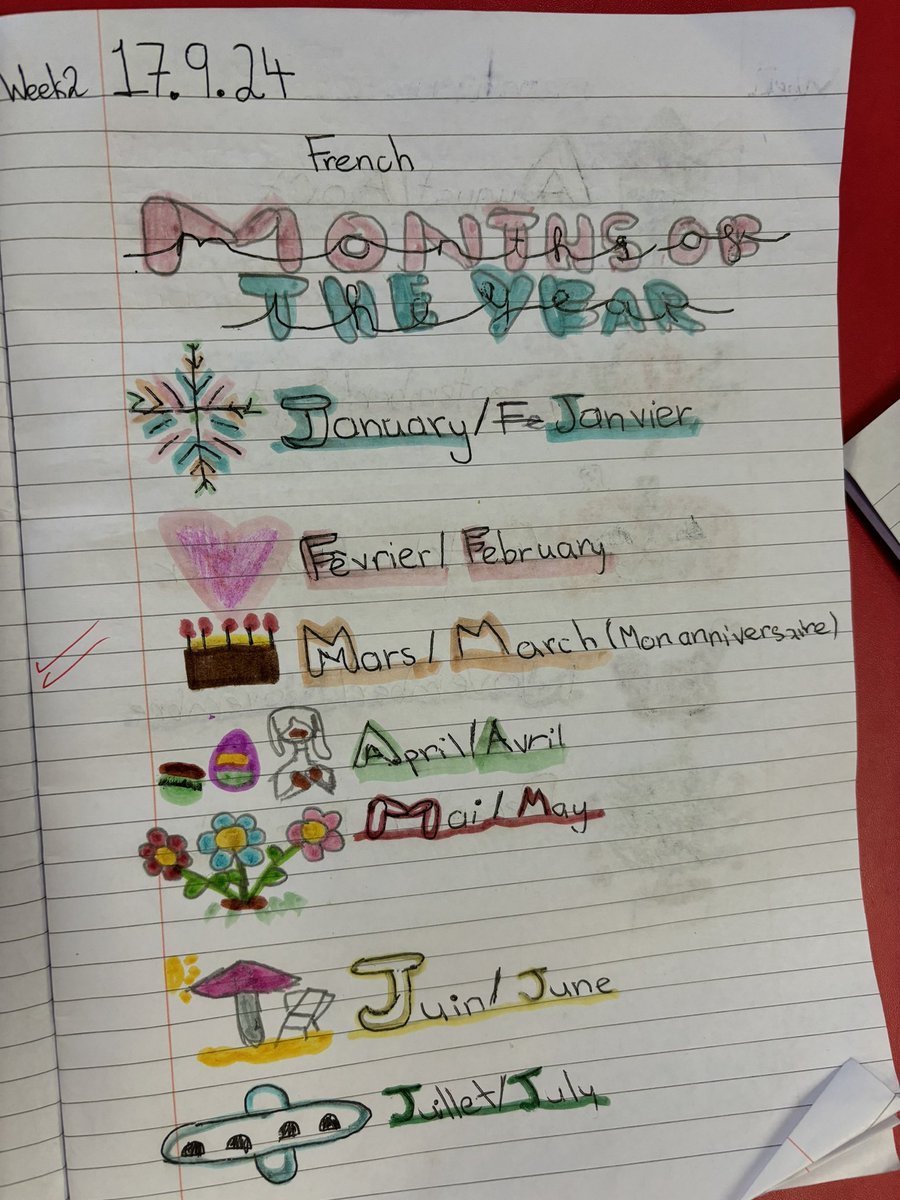 Week2 17.9.24
French
MONTHS OF
months of
THE YEAR
the year
January/ Fe Janvier
Février/ February
Mars/ March (Mon anniversaire)
April/Avril
Mai/ May
Juin/ June
Juillet/July